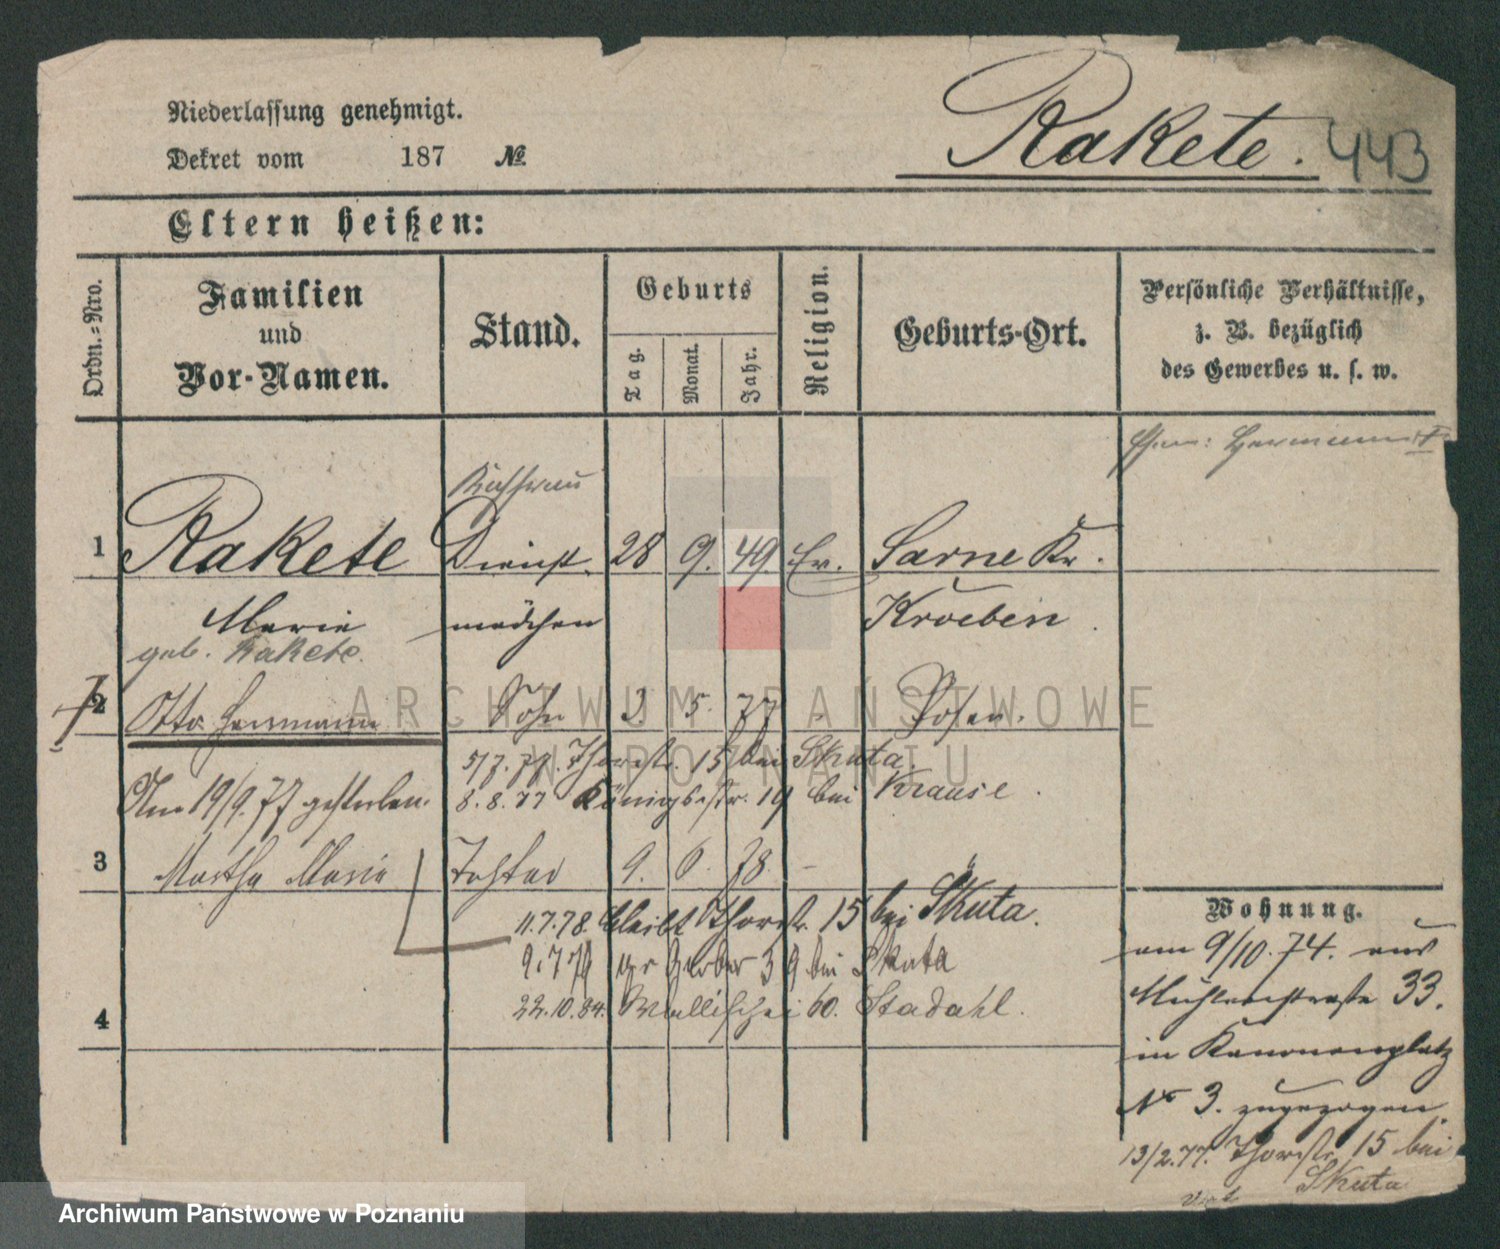 Niederlassung genehmigt.
Dekret vom 187 №
Rakete. 443
Eltern heißen:
Ordn.=Nro.
Familien
und
Vor-Namen.
Stand.
Geburts
Tag.
Monat.
Jahr.
Religion.
Geburts-Ort.
Persönliche Verhältnisse,
z. B. bezüglich
des Gewerbes u. s. w.
Hermann
1 Rakete Dienst- 28 9. 49. Ev. Sarne Kr.
Marie mädchen Kroeben
geb. Rakete.
2 Otto Hermann Sohn 3. 5. 77 - Posen.
5/7. 77. Thorstr. 15 bei Skuta.
Am 19/9. 77 gestorben. 8. 8. 77 Königsstr. 19 bei Krause.
3 Martha Marie Tochter 9. 6. 78 -
11.7.78. bleibt Thorstr. 15 bei Skuta.
9.7 79 gr Gerber 39 bei Skuta
4 22.10.84. Wallischei 60. Stadahl.
Wohnung.
am 9/10. 74. aus
Mühlenstraße 33.
in Kanonenplatz
No 3. zugezogen.
13/2.77. Thorstr. 15 bei
Skuta
ARCHIWUM PAŃSTWOWE
W POZNANIU
Archiwum Państwowe w Poznaniu